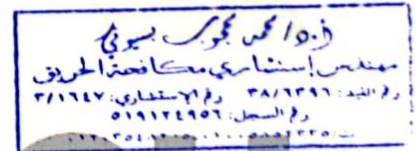 أ.د/ محمد محجوب بسيونى
مهندس إستشارى مكافحة الحريق
رقم القيد: ٣٨/٦٣٩٦ رقم الإستشارى: ٣/١٦٤٧
رقم السجل: ٥١٩١٢٤٩٥٦